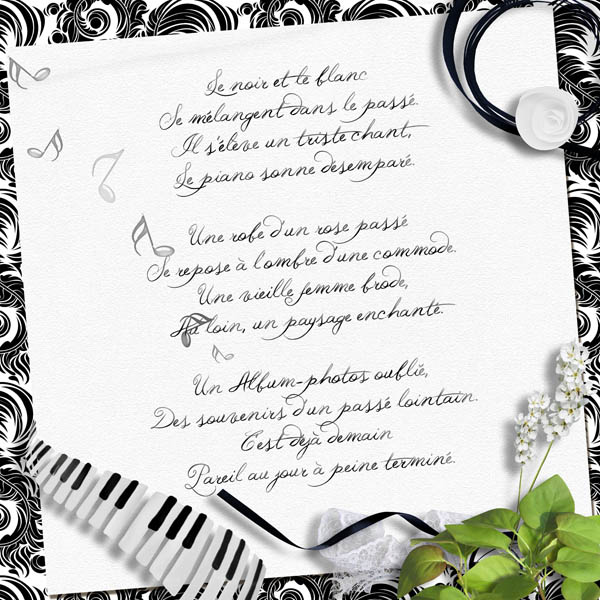 Le noir et le blanc
Se mélangent dans le passé.
Il s'élève un triste chant,
Le piano sonne désemparé.
Une robe d'un rose passé
Se repose à l'ombre d'une commode.
Une vieille femme brode,
Au loin, un paysage enchanté.
Un Album-photos oublié,
Des souvenirs d'un passé lointain.
C'est déjà demain
Pareil au jour à peine terminé.